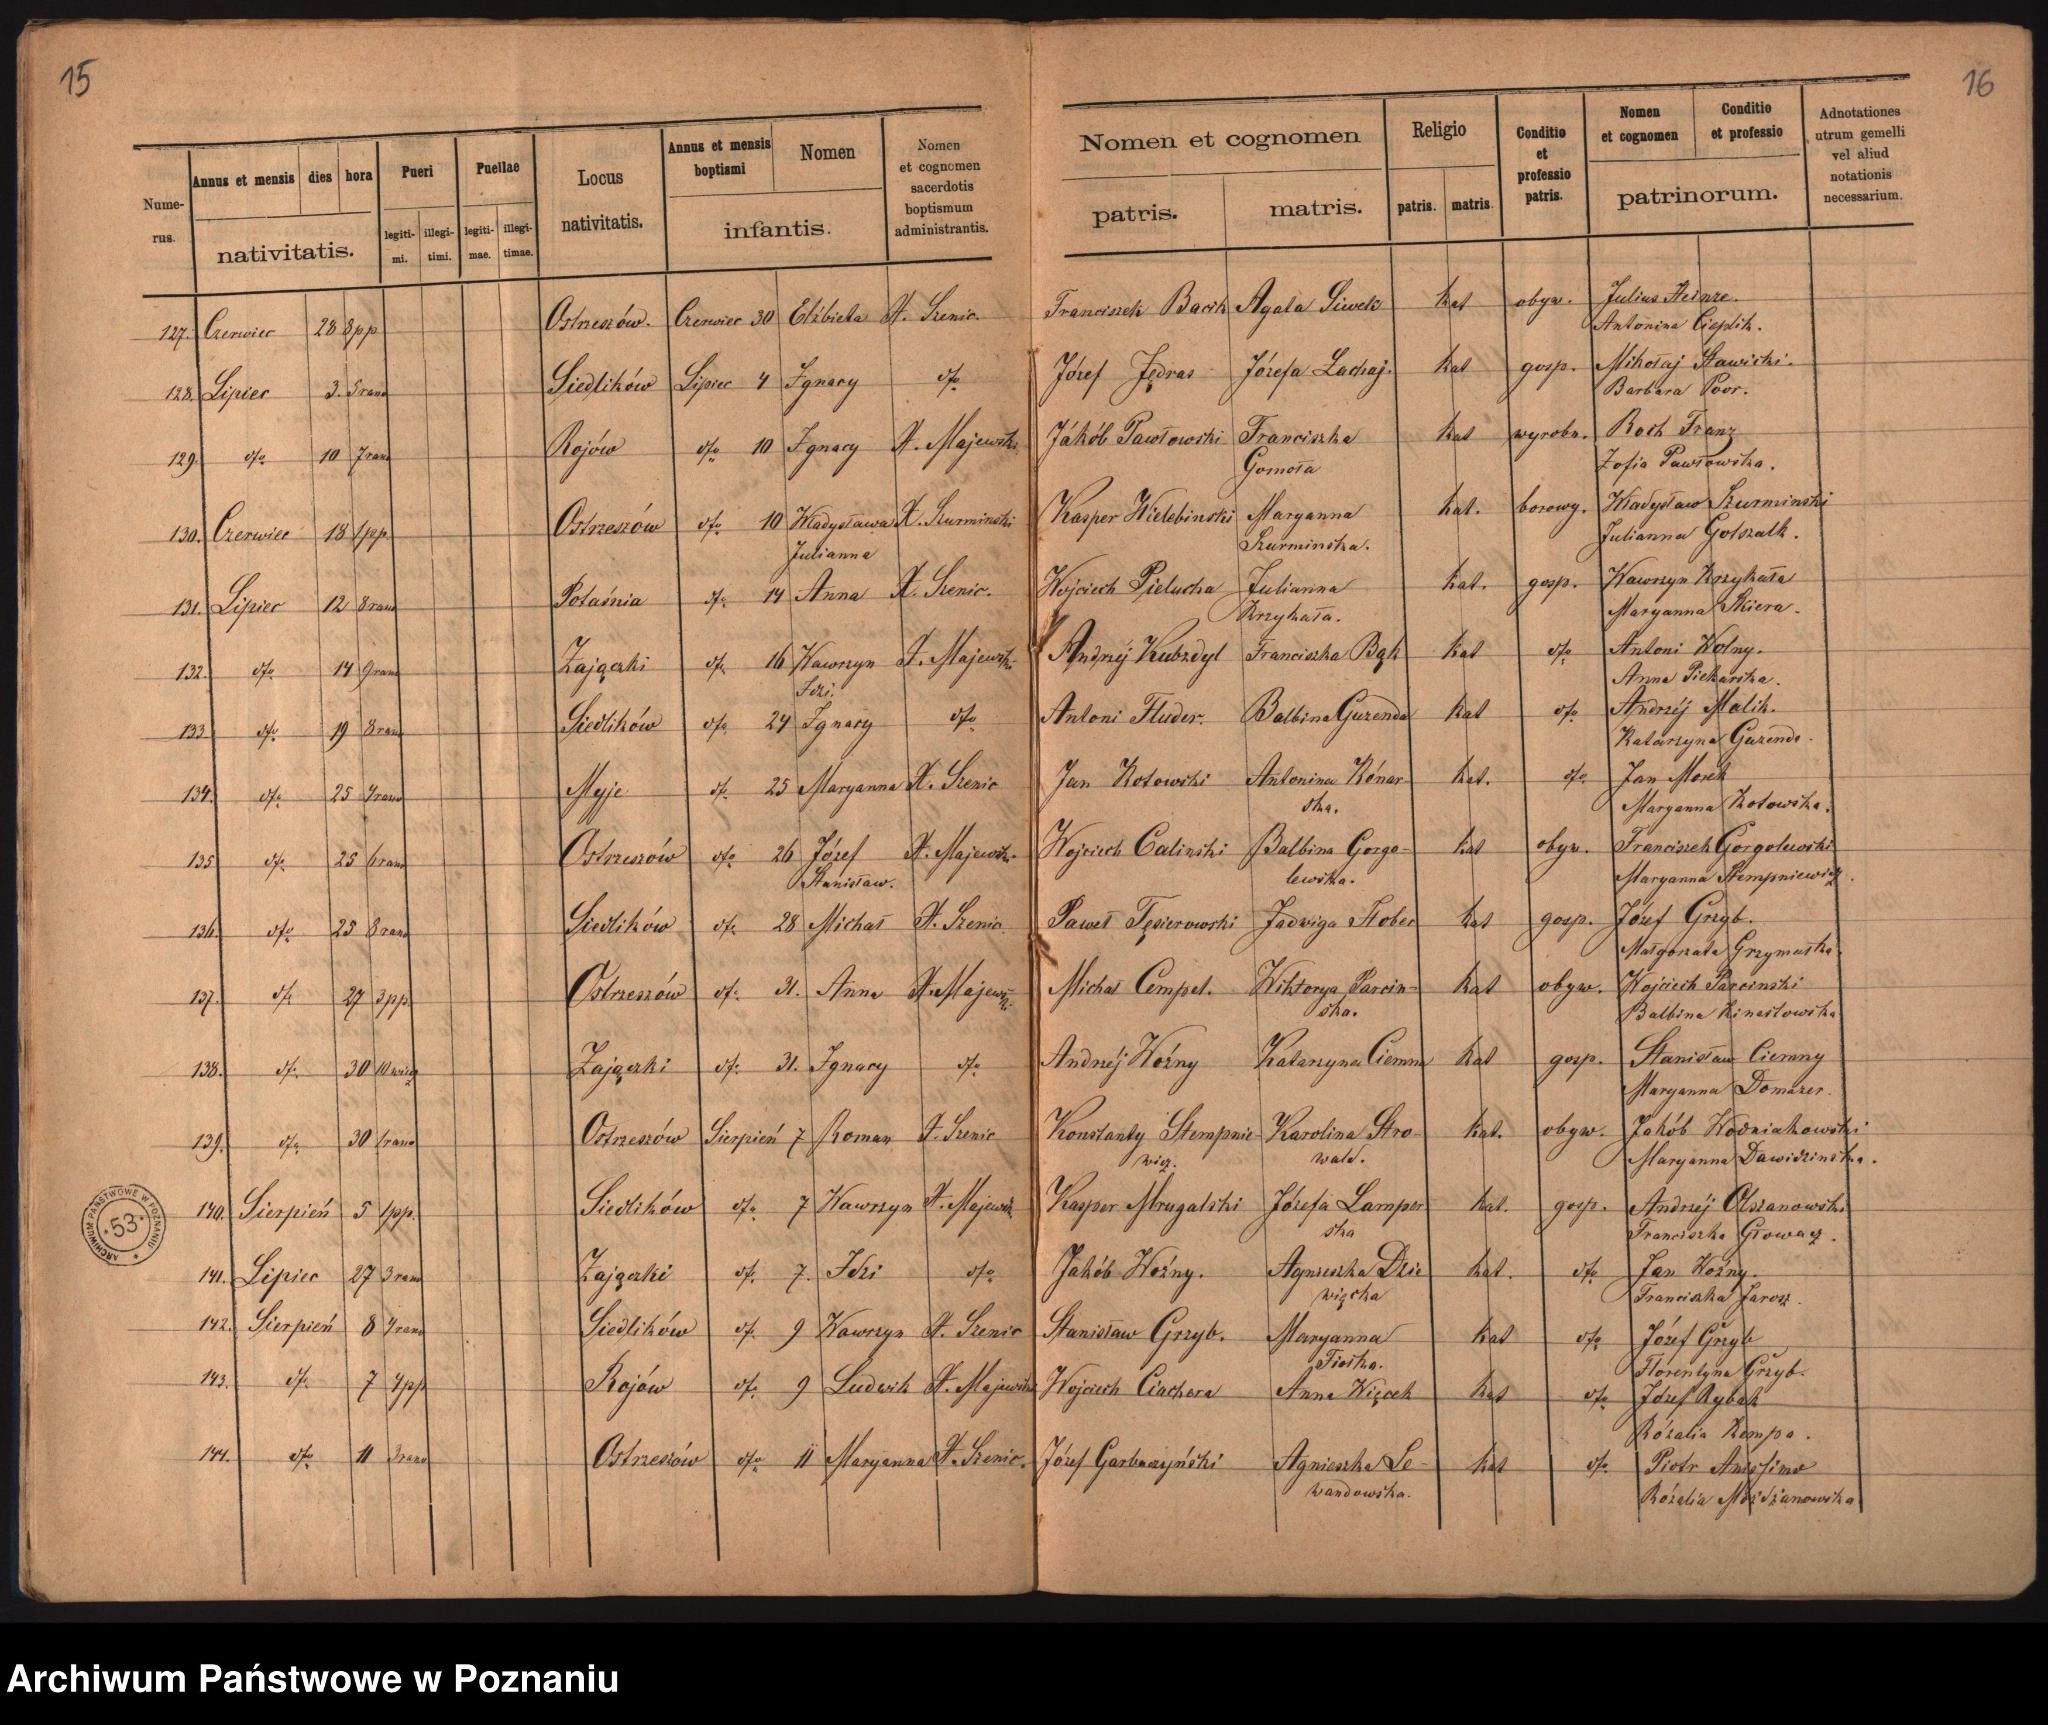 15
16
Numerus.
Annus et mensis dies hora
nativitatis.
Pueri
legitimi. illegitimi.
Puellae
legitimae. illegitimae.
Locus
nativitatis.
Annus et mensis
boptismi
Nomen
infantis.
Nomen
et cognomen
sacerdotis
boptismum
administrantis.
Nomen et cognomen
patris. matris.
Religio
patris. matris.
Conditio
et
professio
patris.
Nomen
et cognomen
Conditio
et professio
patrinorum.
Adnotationes
utrum gemelli
vel aliud
notationis
necessarium.
127. Czerwiec 28 8pp Ostrzeszów. Czerwiec 30 Elżbieta X. Szenic. Franciszek Bacik Agata Siwek kat obyw. Julius Heinze.
Antonina Cieplik.
128. Lipiec 3. 5 rano Siedlików Lipiec 4 Ignacy dto Józef Jędras Józefa Lachaj. kat gosp. Mikołaj Sławicki.
Barbara Poor.
129. dto 10 7 rano Rojów dto 10 Ignacy X. Majewski Jákób Pawłowski Franciszka kat wyrobn. Roch Franz
Gomoła Zofia Pawłowska.
130. Czerwiec 18 1pp. Ostrzeszów dto 10 Władysława X. Szurminski Kasper Wielebinski Maryanna kat. borowy. Władysław Szurminski
Julianna Szurminska. Julianna Gotszalk.
131. Lipiec 12 8 rano Potaśnia dto 14 Anna X. Szenic. Wojciech Pielucha Julianna kat. gosp. Wawrzyn Krzykała
Krzykała. Maryanna Skiera.
132. dto 14 9 rano Zajączki dto 16 Wawrzyn X. Majewski Andrzéj Kubzdyl Franciszka Bąk kat dto Antoni Wolny.
Idzi. Anna Piekarska.
133 dto 19 8 rano Siedlików dto 24 Ignacy dto Antoni Fluder. Balbina Guzenda kat dto Andrzéj Malik.
Katarzyna Guzenda.
134. dto 25 4 rano Myje dto 25 Maryanna X. Szenic Jan Kotowski Antonina Kónar- kat. dto Jan Morek
ska. Maryanna Kotowska.
135 dto 25 6 rano Ostrzeszów dto 26 Józef X. Majewski Wojciech Calinski Balbina Gorgo- kat obyw. Franciszek Gorgolewski
Stanisław. lewska. Maryanna Stempniewicz.
136. dto 25 8 rano Siedlików dto 28 Michał X. Szenic. Paweł Tęsierowski Jadwiga Stober kat gosp. Józef Grzyb.
Małgorzata Grzymaska
137. dto 27 3 pp. Ostrzeszów dto 31. Anna X. Majewski Michał Cempel. Wiktorya Parcin- kat obyw. Wojciech Parcinski
ska. Balbina Kinastowska
138. dto 30 10 wiecz Zajączki dto 31. Ignacy dto Andrzéj Woźny Katarzyna Ciemna kat gosp. Stanisław Ciemny
Maryanna Domazer.
139. dto 30 1 rano Ostrzeszów Sierpień 7 Roman X. Szenic Konstanty Stempnie- Karolina Stro- kat. obyw. Jakób Wozniakowski
wicz. wald. Maryanna Dawidzinska.
140. Sierpień 5 1pp. Siedlików dto 7 Wawrzyn X. Majewski Kasper Mrugalski Józefa Lamper kat. gosp. Andrzéj Olszanowski
ska Franciszka Głowacz.
141. Lipiec 27 3 rano Zajączki dto 7. Idzi dto Jakób Woźny. Agnieszka Dzie kat. dto Jan Woźny.
więcka Franciszka Jarosz.
142. Sierpień 8 4 rano Siedlików dto 9 Wawrzyn X. Szenic Stanisław Grzyb. Maryanna kat dto Józef Grzyb
Florentyna Grzyb.
143. dto 7 4pp Rojów dto 9 Ludwik X. Majewski Wojciech Ciachera Anna Więcek kat dto Józef Rybak
Rózalia Kempa.
144. dto 11 3 rano Ostrzeszów dto 11 Maryanna X. Szenic. Józef Garbaczyński Agnieszka Le- kat dto Piotr
wandowska. Rózalia Możdżanowska
ARCHIWUM PAŃSTWOWE W POZNANIU
53
Archiwum Państwowe w Poznaniu